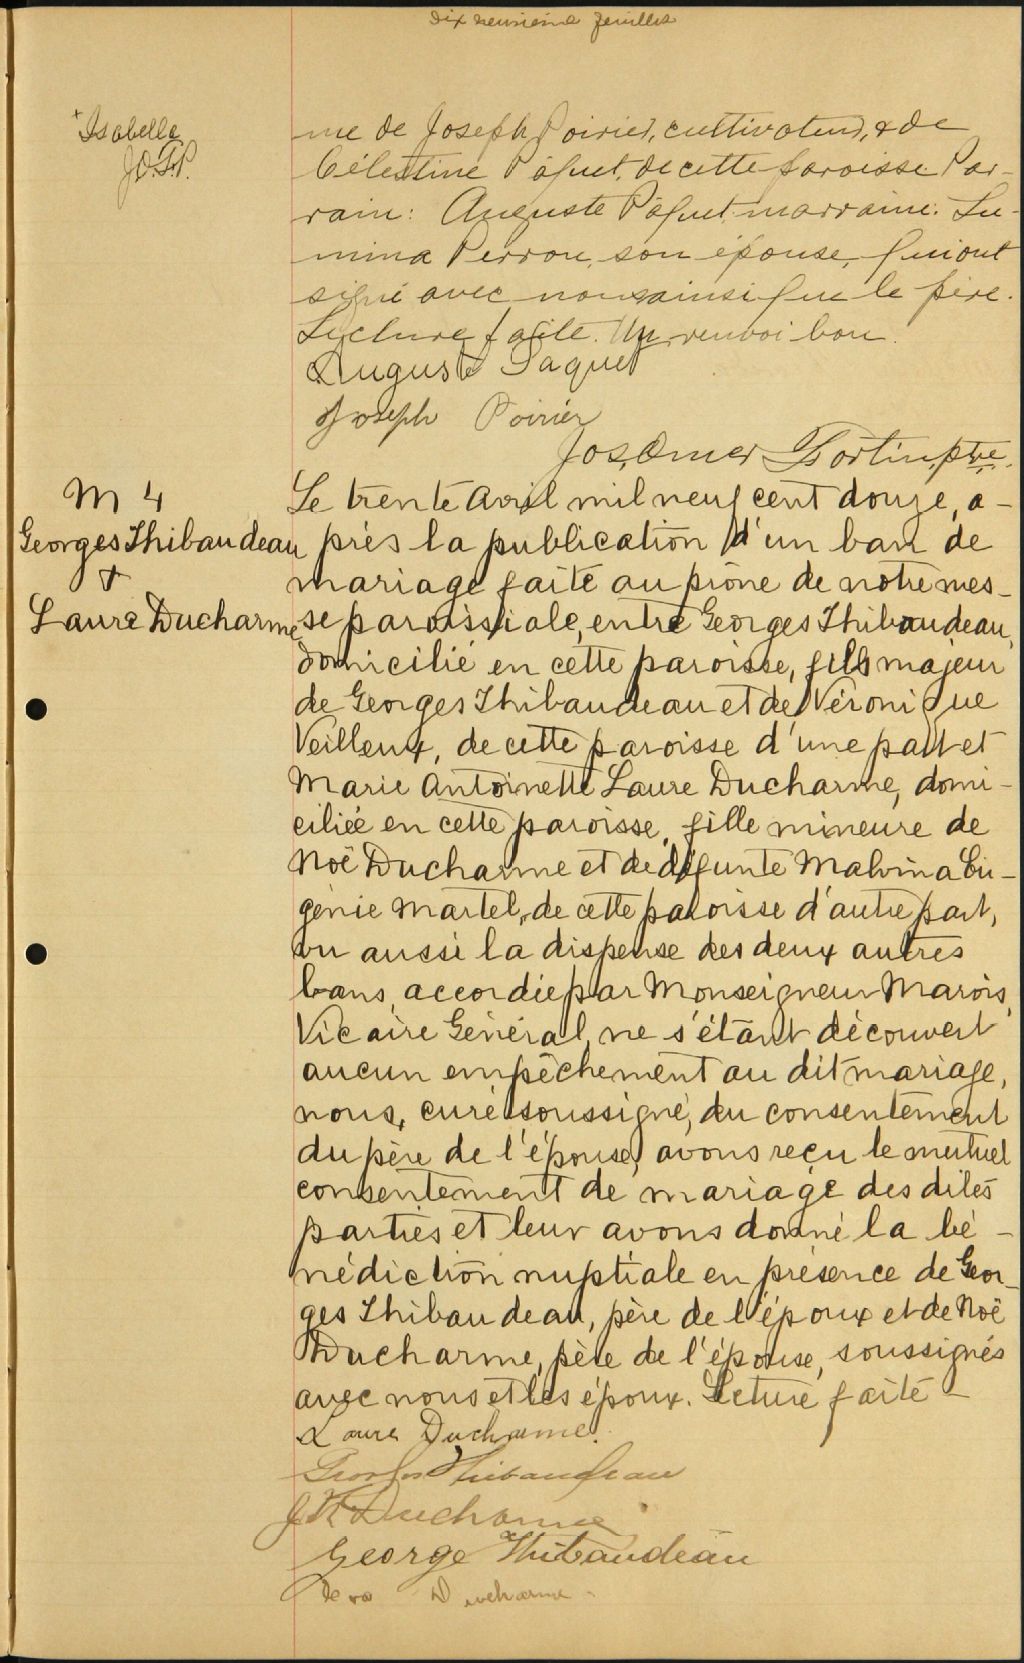 Dix neuvième feuillet
+ Isabelle
J.O.F.P.
me de Joseph Poirier, cultivateur, & de
Célestine Pâquet, de cette paroisse. Par-
rain: Auguste Pâquet, marraine: Lu-
mina Perron, son épouse, qui ont
signé avec nous ainsi que le père.
Lecture faite. Un renvoi bon.
Auguste Paquet
Joseph Poirier
Jos. Omer Fortin, ptre.
M 4
Georges Thibaudeau
+
Laure Ducharme
Le trente Avril mil neuf cent douze, a-
près la publication d'un ban de
mariage faite au prône de notre mes-
se paroissiale, entre Georges Thibaudeau,
domicilié en cette paroisse, fils majeur
de Georges Thibaudeau et de Véronique
Veilleux, de cette paroisse d'une part et
Marie Antoinette Laure Ducharme, domi-
ciliée en cette paroisse, fille mineure de
Noë Ducharme et de défunte Malvina Eu-
génie Martel, de cette paroisse d'autre part,
vu aussi la dispense des deux autres
bans, accordée par Monseigneur Marois,
Vicaire Général, ne s'étant découvert
aucun empêchement au dit mariage,
nous, curé soussigné, du consentement
du père de l'épouse, avons reçu le mutuel
consentement de mariage des dites
parties et leur avons donné la bé-
nédiction nuptiale en présence de Geor-
ges Thibaudeau, père de l'époux et de Noë
Ducharme, père de l'épouse, soussignés
avec nous et les époux. Lecture faite -
Laure Ducharme.
Georges Thibaudeau
J N Ducharme
George Thibaudeau
Ducharme